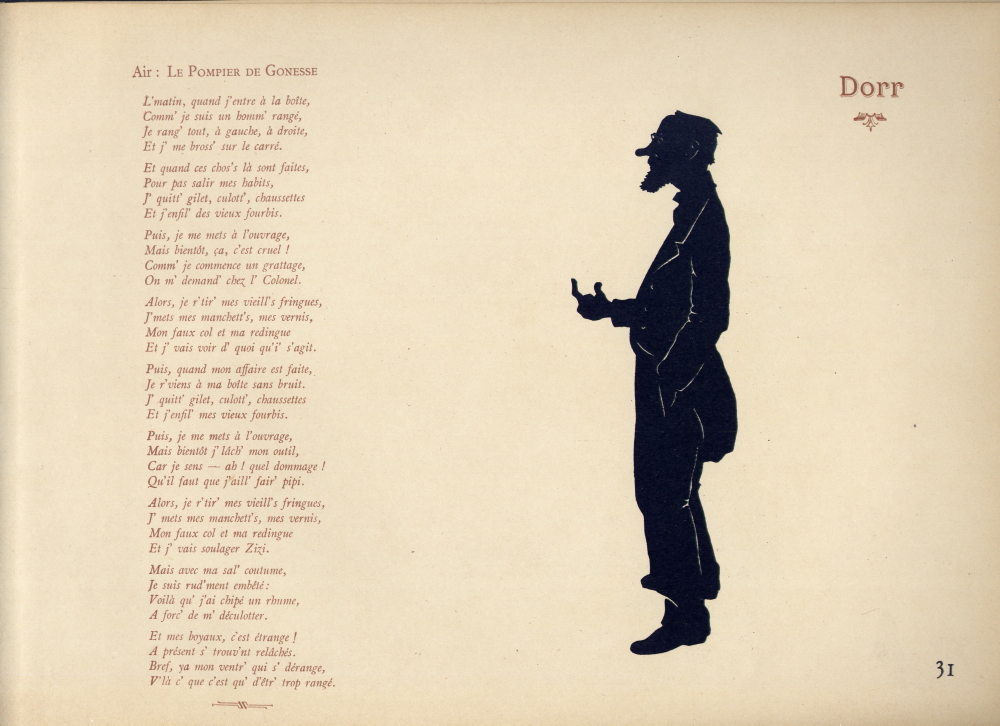 Air : Le Pompier de Gonesse
L'matin, quand j'entre à la boîte,
Comm' je suis un homm' rangé,
Je rang' tout, à gauche, à droite,
Et j' me bross' sur le carré.
Et quand ces chos's là sont faites,
Pour pas salir mes habits,
J' quitt' gilet, culott', chaussettes
Et j'enfil' des vieux fourbis.
Puis, je me mets à l'ouvrage,
Mais bientôt, ça, c'est cruel !
Comm' je commence un grattage,
On m' demand' chez l' Colonel.
Alors, je r'tir' mes vieill's fringues,
J'mets mes manchett's, mes vernis,
Mon faux col et ma redingue
Et j' vais voir d' quoi qu'i' s'agit.
Puis, quand mon affaire est faite,
Je r'viens à ma boîte sans bruit.
J' quitt' gilet, culott', chaussettes
Et j'enfil' mes vieux fourbis.
Puis, je me mets à l'ouvrage,
Mais bientôt j' lâch' mon outil,
Car je sens — ah ! quel dommage !
Qu'il faut que j'aill' fair' pipi.
Alors, je r'tir' mes vieill's fringues,
J' mets mes manchett's, mes vernis,
Mon faux col et ma redingue
Et j' vais soulager Zizi.
Mais avec ma sal' coutume,
Je suis rud'ment embêté :
Voilà qu' j'ai chipé un rhume,
A forc' de m' déculotter.
Et mes boyaux, c'est étrange !
A présent s' trouv'nt relâchés.
Bref, ya mon ventr' qui s' dérange,
V'là c' que c'est qu' d'êtr' trop rangé.
Dorr
31